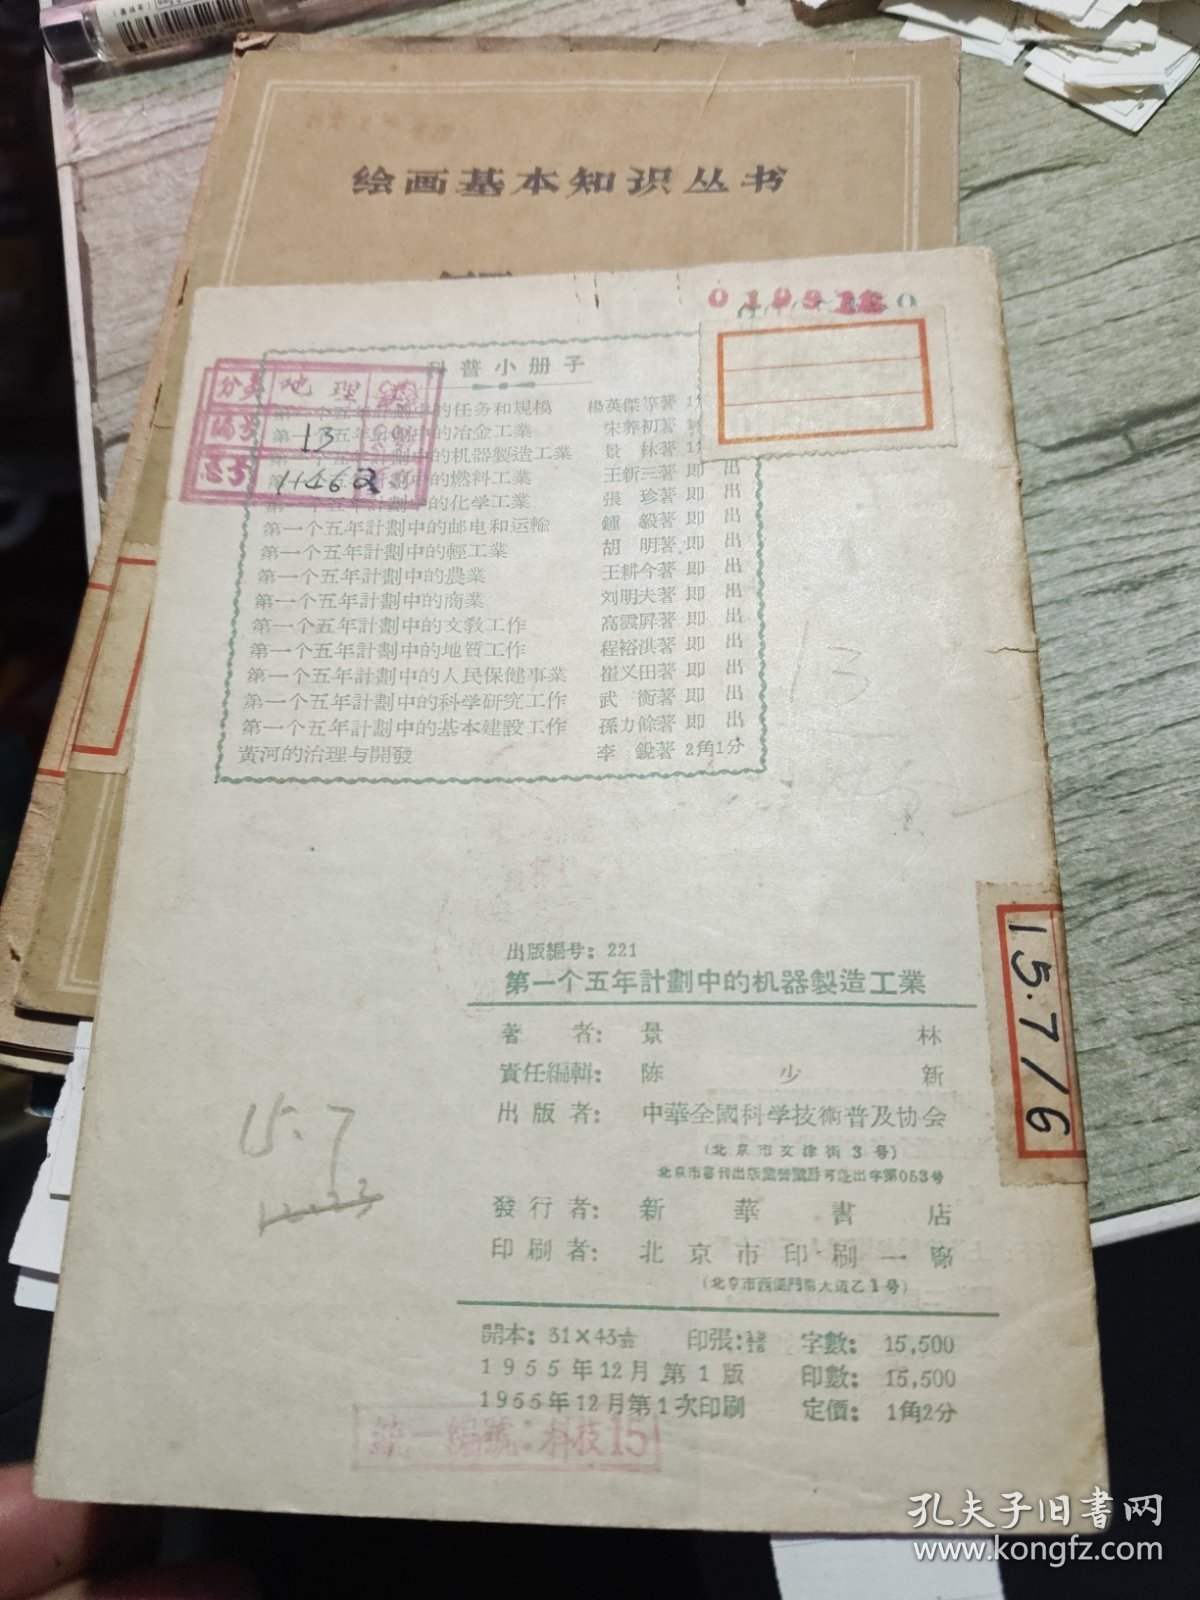 绘画基本知识丛书
科普小册子
第一个五年計劃中的任务和規模 楊英傑等著
第一个五年計劃中的冶金工業 宋养初著
第一个五年計劃中的机器製造工業 景 林著
第一个五年計劃中的燃料工業 王新三著 即 出
第一个五年計劃中的化学工業 張 珍著 即 出
第一个五年計劃中的邮电和运輸 鍾 毅著 即 出
第一个五年計劃中的輕工業 胡 明著 即 出
第一个五年計劃中的農業 王耕今著 即 出
第一个五年計劃中的商業 刘明夫著 即 出
第一个五年計劃中的文教工作 高雲屏著 即 出
第一个五年計劃中的地質工作 程裕淇著 即 出
第一个五年計劃中的人民保健事業 崔义田著 即 出
第一个五年計劃中的科学研究工作 武 衡著 即 出
第一个五年計劃中的基本建設工作 孫力餘著 即 出
黃河的治理与開發 李 銳著 2角1分
分类 地理
編号 13
总号 1462
13
出版編号：221
第一个五年計劃中的机器製造工業
著 者： 景 林
責任編輯： 陈 少 新
出版者： 中華全國科学技術普及协会
（北京市文津街3号）
北京市書刊出版業營業許可証出字第053号
發行者： 新 華 書 店
印刷者： 北京市印刷一廠
（北京市西便門南大道乙1号）
開本：31×43 1/32 印張： 字數：15,500
1955年12月第1版 印數：15,500
1955年12月第1次印刷 定價：1角2分
統一編號：科技15
15.7
15.7/6
孔夫子旧书网
www.kongfz.com